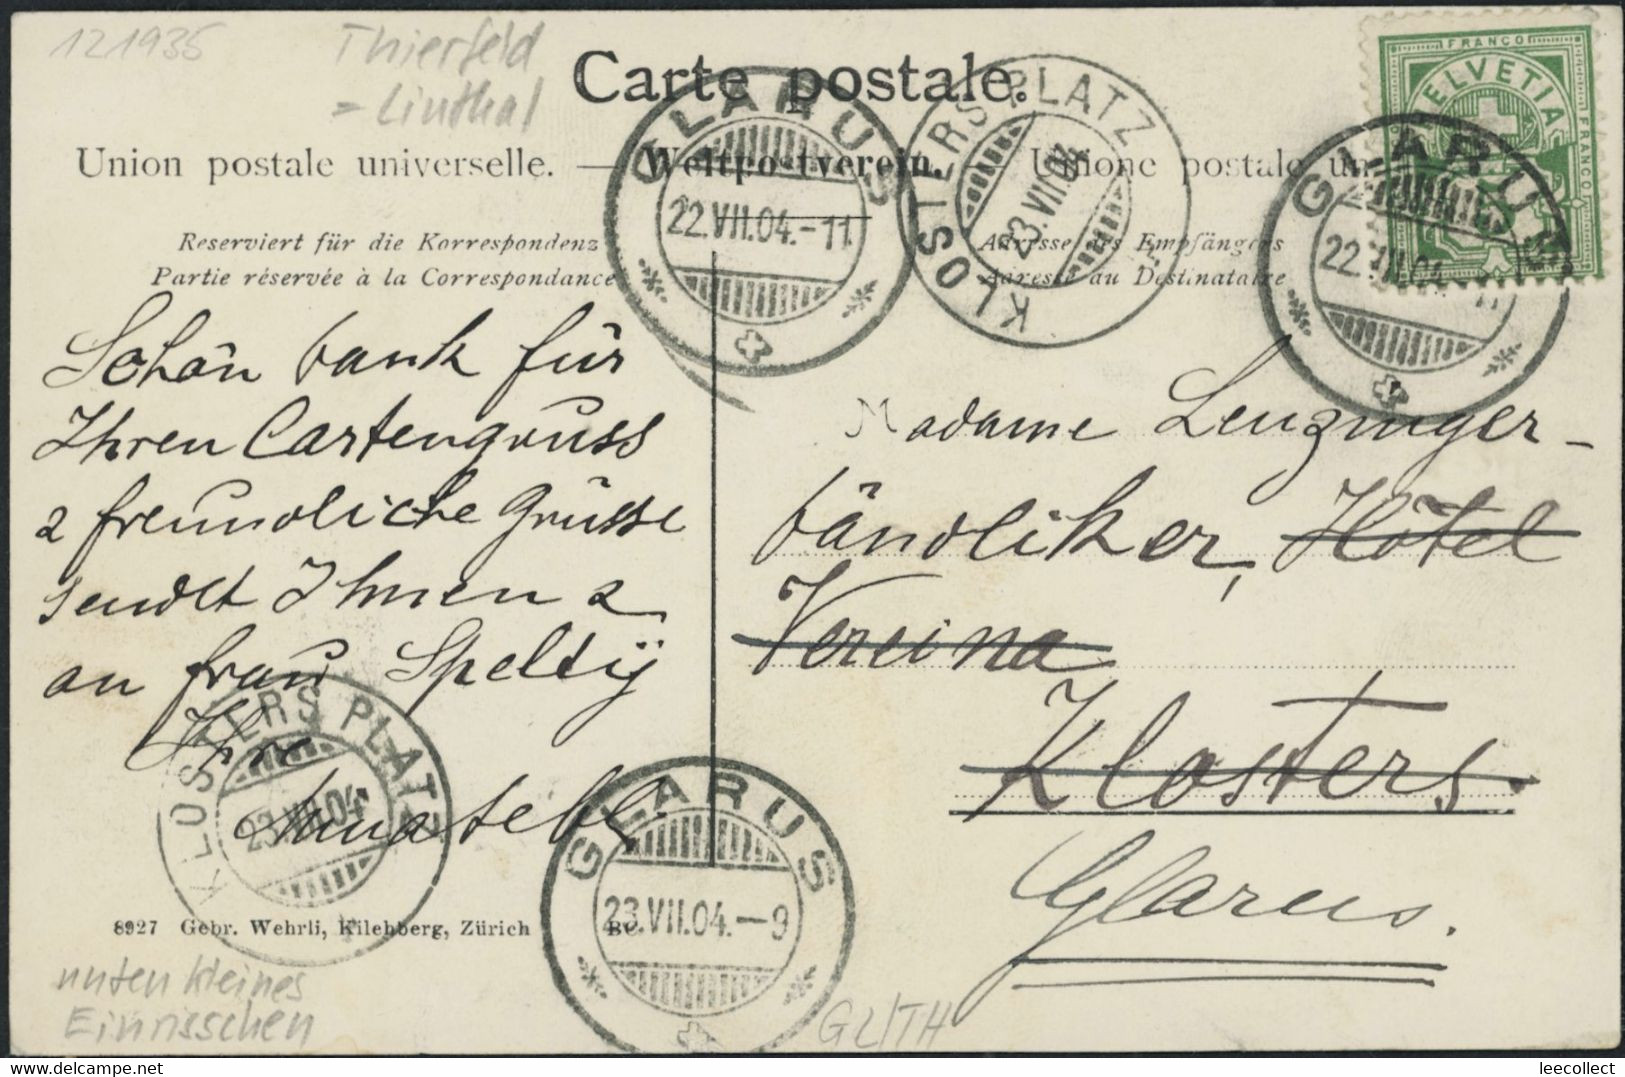 121935
Thierfeld
= Linthal
Carte postale.
Union postale universelle. — Weltpostverein. — Unione postale un
Reserviert für die Korrespondenz
Partie réservée à la Correspondance
Adresse des Empfängers
Adresse au Destinataire
FRANCO
HELVETIA
FRANCO
GLARUS
22.VII.04.-11
KLOSTERS PLATZ
23.VII.04
GLARUS
22.VII.04 11
Schön dank für
Ihren Cartengruss
& freundliche Grüsse
sendet Ihnen &
an frau Speltÿ
Ihre
Madame Lenzinger-
bändliker, Hôtel
Vereina
Klosters.
Glarus.
KLOSTERS PLATZ
23.VII.04
GLARUS
23.VII.04.—9
8927 Gebr. Wehrli, Kilchberg, Zürich
unten kleines
Einrisschen
GL/TH
leecollect